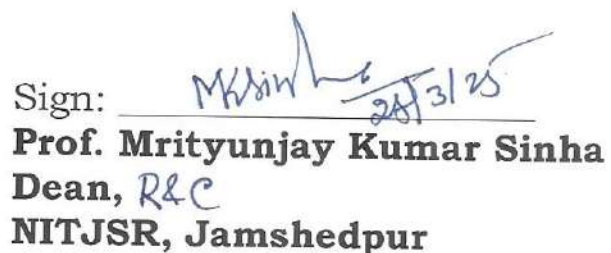 Sign: MKSinha 28/3/25
Prof. Mrityunjay Kumar Sinha
Dean, R&C
NITJSR, Jamshedpur